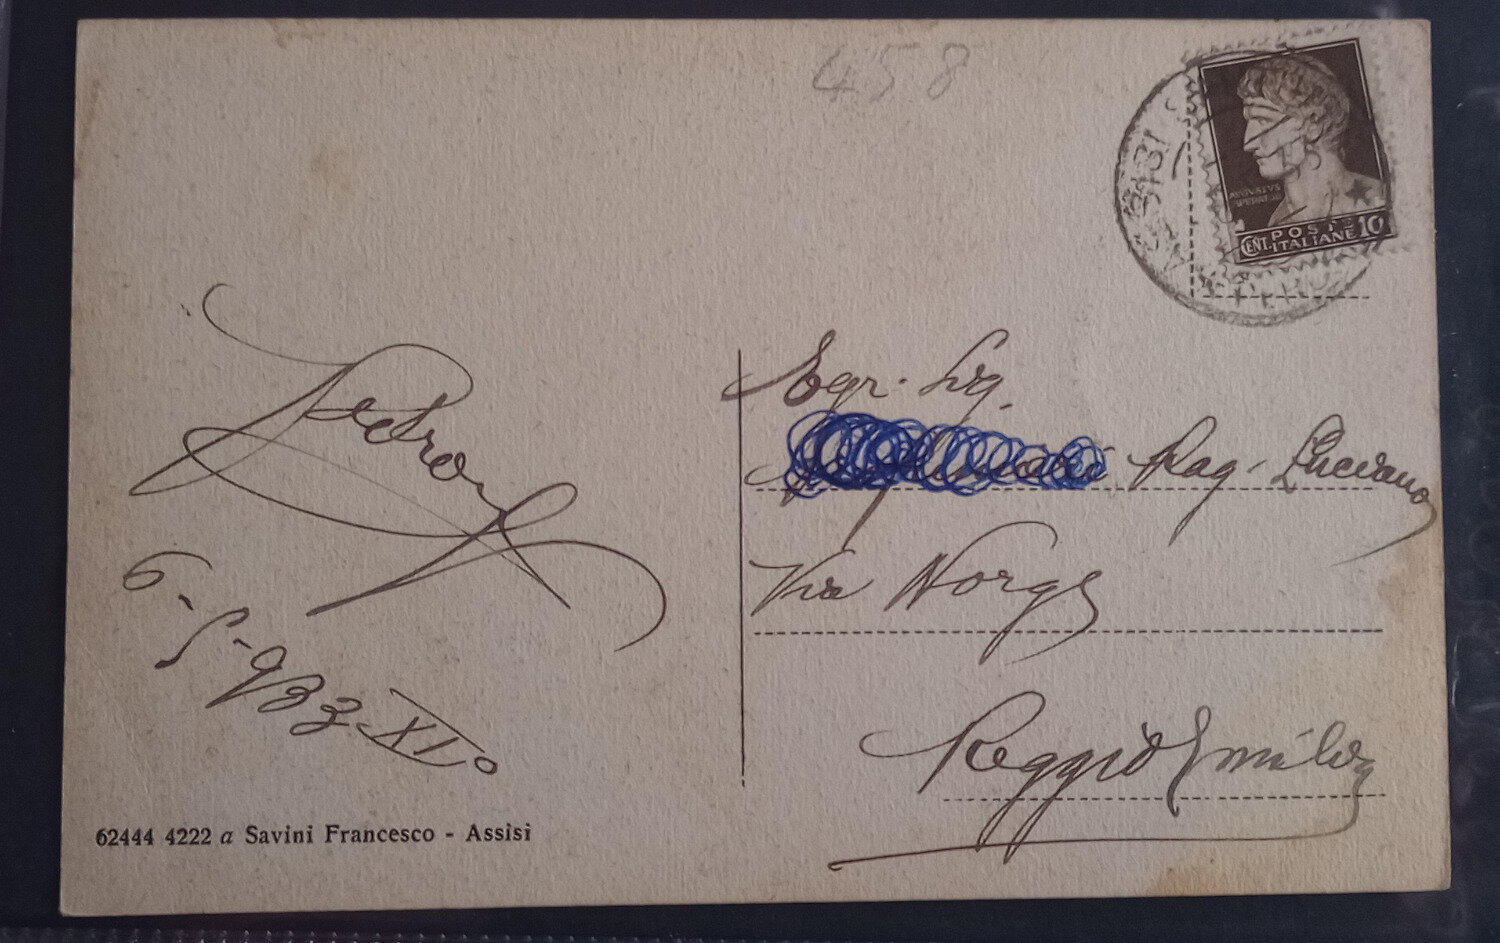 458
ASSISI
AVGVSTVS
CENT. POSTE ITALIANE 10
Egr. Sig.
Rag. Luciano
Via Norge
Reggio Emilia
6-5-933-XIº
62444 4222 a Savini Francesco - Assisi